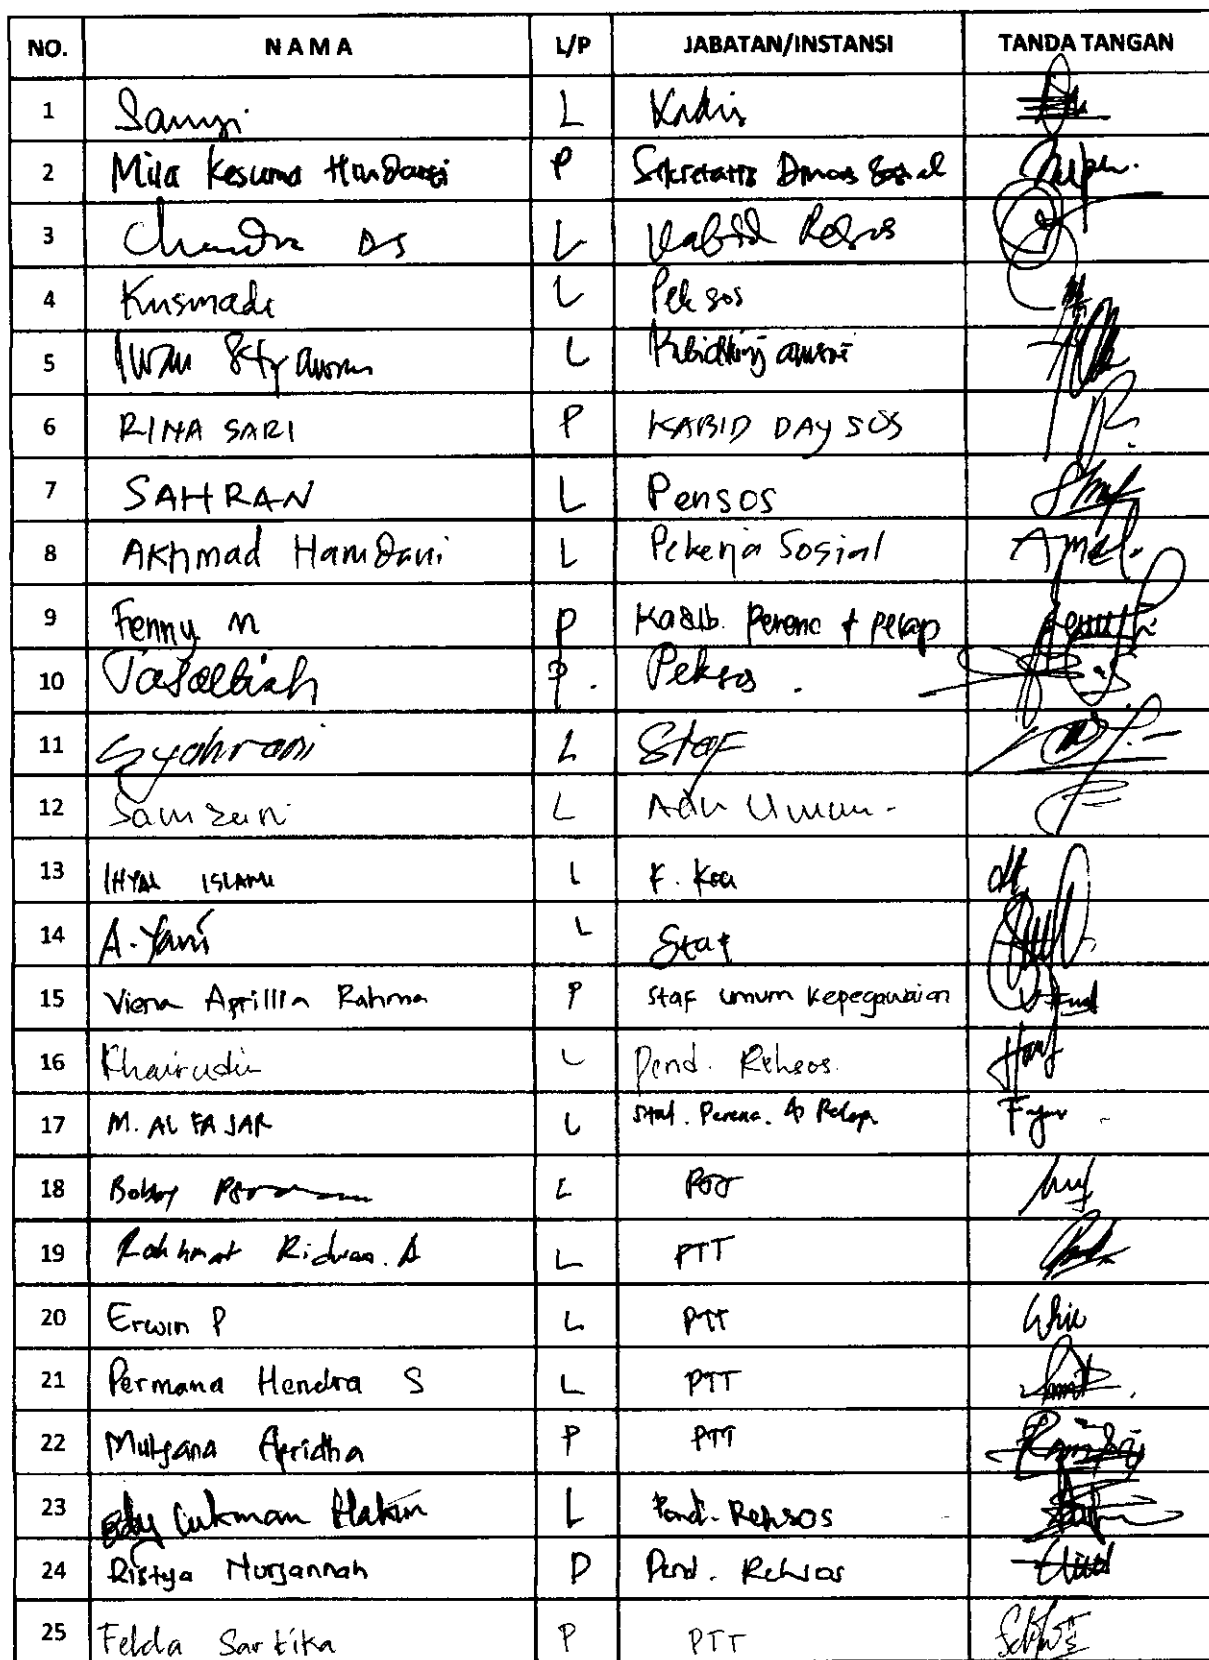 NO. NAMA L/P JABATAN/INSTANSI TANDA TANGAN
1 L Kadis
2 Mila Kesuma Handayani P Sekretaris Dinas Sosial
3 Chandra DS L Kabid Rehsos
4 Kusmadi L Peksos
5 Iwan Setyawan L
6 RINA SARI P KABID DAYSOS
7 SAHRAN L Pensos
8 AKHMAD HamDani L Pekerja Sosial
9 Fenny M P Kasub. Perenc + pelap
10 P. Peksos.
11 Syahrani L Staf
12 Samzani L Adm Umum.
13 IHYAL ISLAMI L
14 A. Yani L Staf
15 Viena Aprillia Rahma P Staf Umum Kepegawaian
16 Khairudin L Pend. Rehsos.
17 M. AL FAJAR L Staf. Perenc. & Pelap Fajar
18 Bobby L
19 Rahmat Ridwan. A L PTT
20 Erwin P L PTT
21 Permana Hendra S L PTT
22 Mutyana Apridha P PTT
23 Edy Lukman Hakim L Pend. Rehsos
24 Ristya Nurjannah P Pend. Rehsos
25 Felda Sartika P PTT